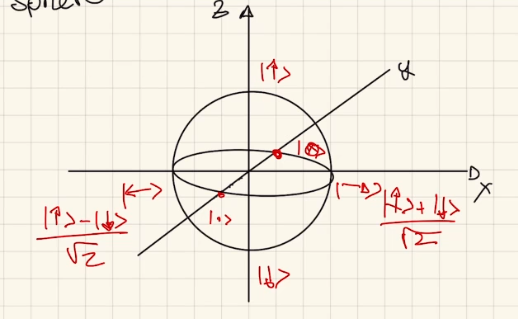 sphere
z
|↑⟩
y
|⊗⟩
x
|←⟩
|→⟩
|↑⟩ - |↓⟩
√2
|↑⟩ + |↓⟩
√2
|·⟩
|↓⟩